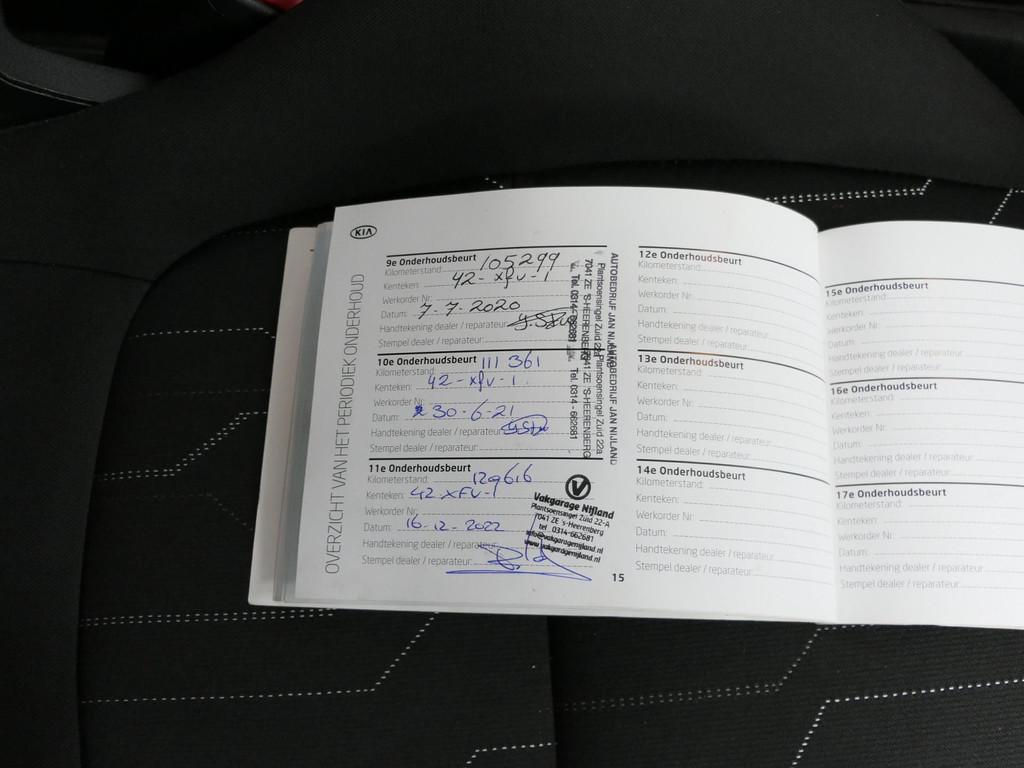 KIA
OVERZICHT VAN HET PERIODIEK ONDERHOUD
9e Onderhoudsbeurt
Kilometerstand: 105299
Kenteken: 42-xfv-1
Werkorder Nr:
Datum: 7-7-2020
Handtekening dealer / reparateur:
Stempel dealer / reparateur:
AUTOBEDRIJF JAN NIJLAND
Plantsoensingel Zuid 22a
7041 ZE 'S-HEERENBERG
Tel. 0314-662681
10e Onderhoudsbeurt
Kilometerstand: 111 361
Kenteken: 42-xfv-1
Werkorder Nr:
Datum: 30-6-21
Handtekening dealer / reparateur:
Stempel dealer / reparateur:
AUTOBEDRIJF JAN NIJLAND
Plantsoensingel Zuid 22a
7041 ZE 'S-HEERENBERG
Tel. 0314 - 662681
11e Onderhoudsbeurt
Kilometerstand: 129616
Kenteken: 42 xFV-1
Werkorder Nr:
Datum: 16-12-2022
Handtekening dealer / reparateur:
Stempel dealer / reparateur:
Vakgarage Nijland
Plantsoensingel Zuid 22-A
7041 ZE 's-Heerenberg
tel. 0314-662681
info@vakgaragenijland.nl
www.vakgaragenijland.nl
15
12e Onderhoudsbeurt
Kilometerstand:
Kenteken:
Werkorder Nr:
Datum:
Handtekening dealer / reparateur:
Stempel dealer / reparateur:
13e Onderhoudsbeurt
Kilometerstand:
Kenteken:
Werkorder Nr:
Datum:
Handtekening dealer / reparateur:
Stempel dealer / reparateur:
14e Onderhoudsbeurt
Kilometerstand:
Kenteken:
Werkorder Nr:
Datum:
Handtekening dealer / reparateur:
Stempel dealer / reparateur:
15e Onderhoudsbeurt
Kilometerstand:
Kenteken:
Werkorder Nr:
Datum:
Handtekening dealer / reparateur:
Stempel dealer / reparateur:
16e Onderhoudsbeurt
Kilometerstand:
Kenteken:
Werkorder Nr:
Datum:
Handtekening dealer / reparateur:
Stempel dealer / reparateur:
17e Onderhoudsbeurt
Kilometerstand:
Kenteken:
Werkorder Nr:
Datum:
Handtekening dealer / reparateur:
Stempel dealer / reparateur: